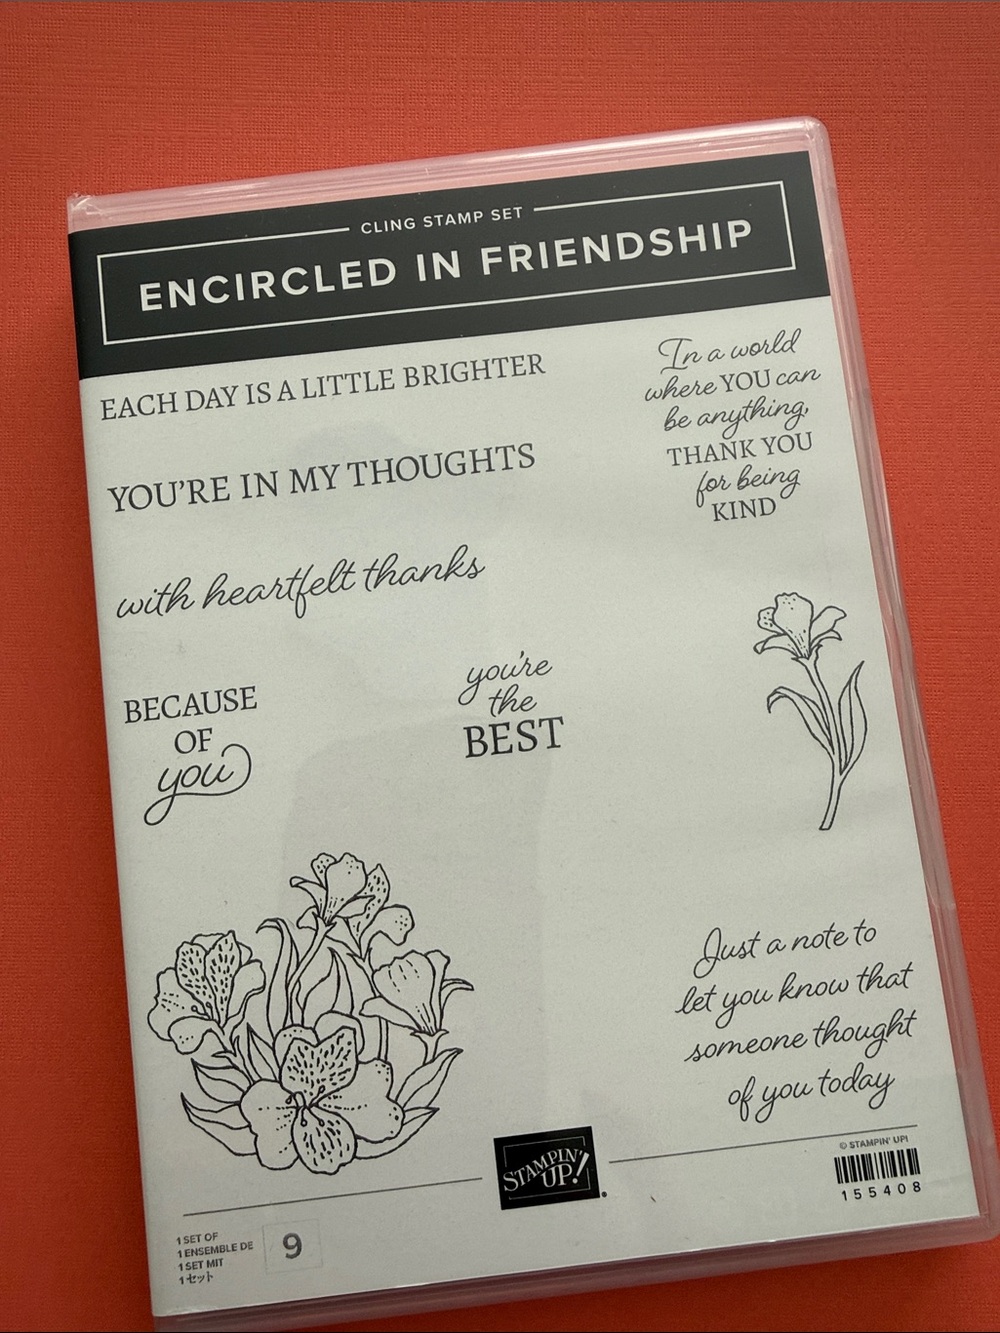 CLING STAMP SET
ENCIRCLED IN FRIENDSHIP
EACH DAY IS A LITTLE BRIGHTER
YOU'RE IN MY THOUGHTS
with heartfelt thanks
In a world
where YOU can
be anything,
THANK YOU
for being
KIND
BECAUSE
OF
you
you're
the
BEST
Just a note to
let you know that
someone thought
of you today
STAMPIN'
UP!
®
© STAMPIN' UP!
155408
1 SET OF
1 ENSEMBLE DE
1 SET MIT
1セット
9